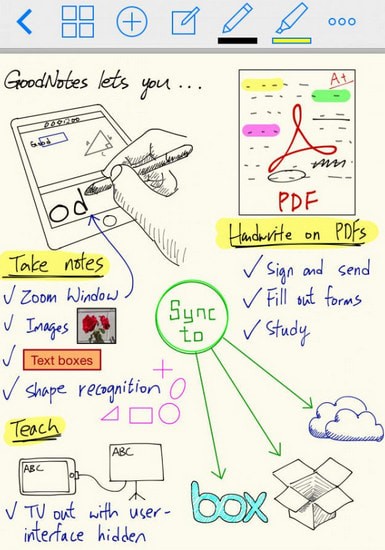 GoodNotes lets you ...
Good
od
A+
PDF
Handwrite on PDFs
Take notes
✓ Zoom Window
✓ Images
✓ Text boxes
✓ Shape recognition
✓ Sign and send
✓ Fill out forms
✓ Study
Sync
to
Teach
ABC
ABC
✓ TV out with user-
interface hidden
box